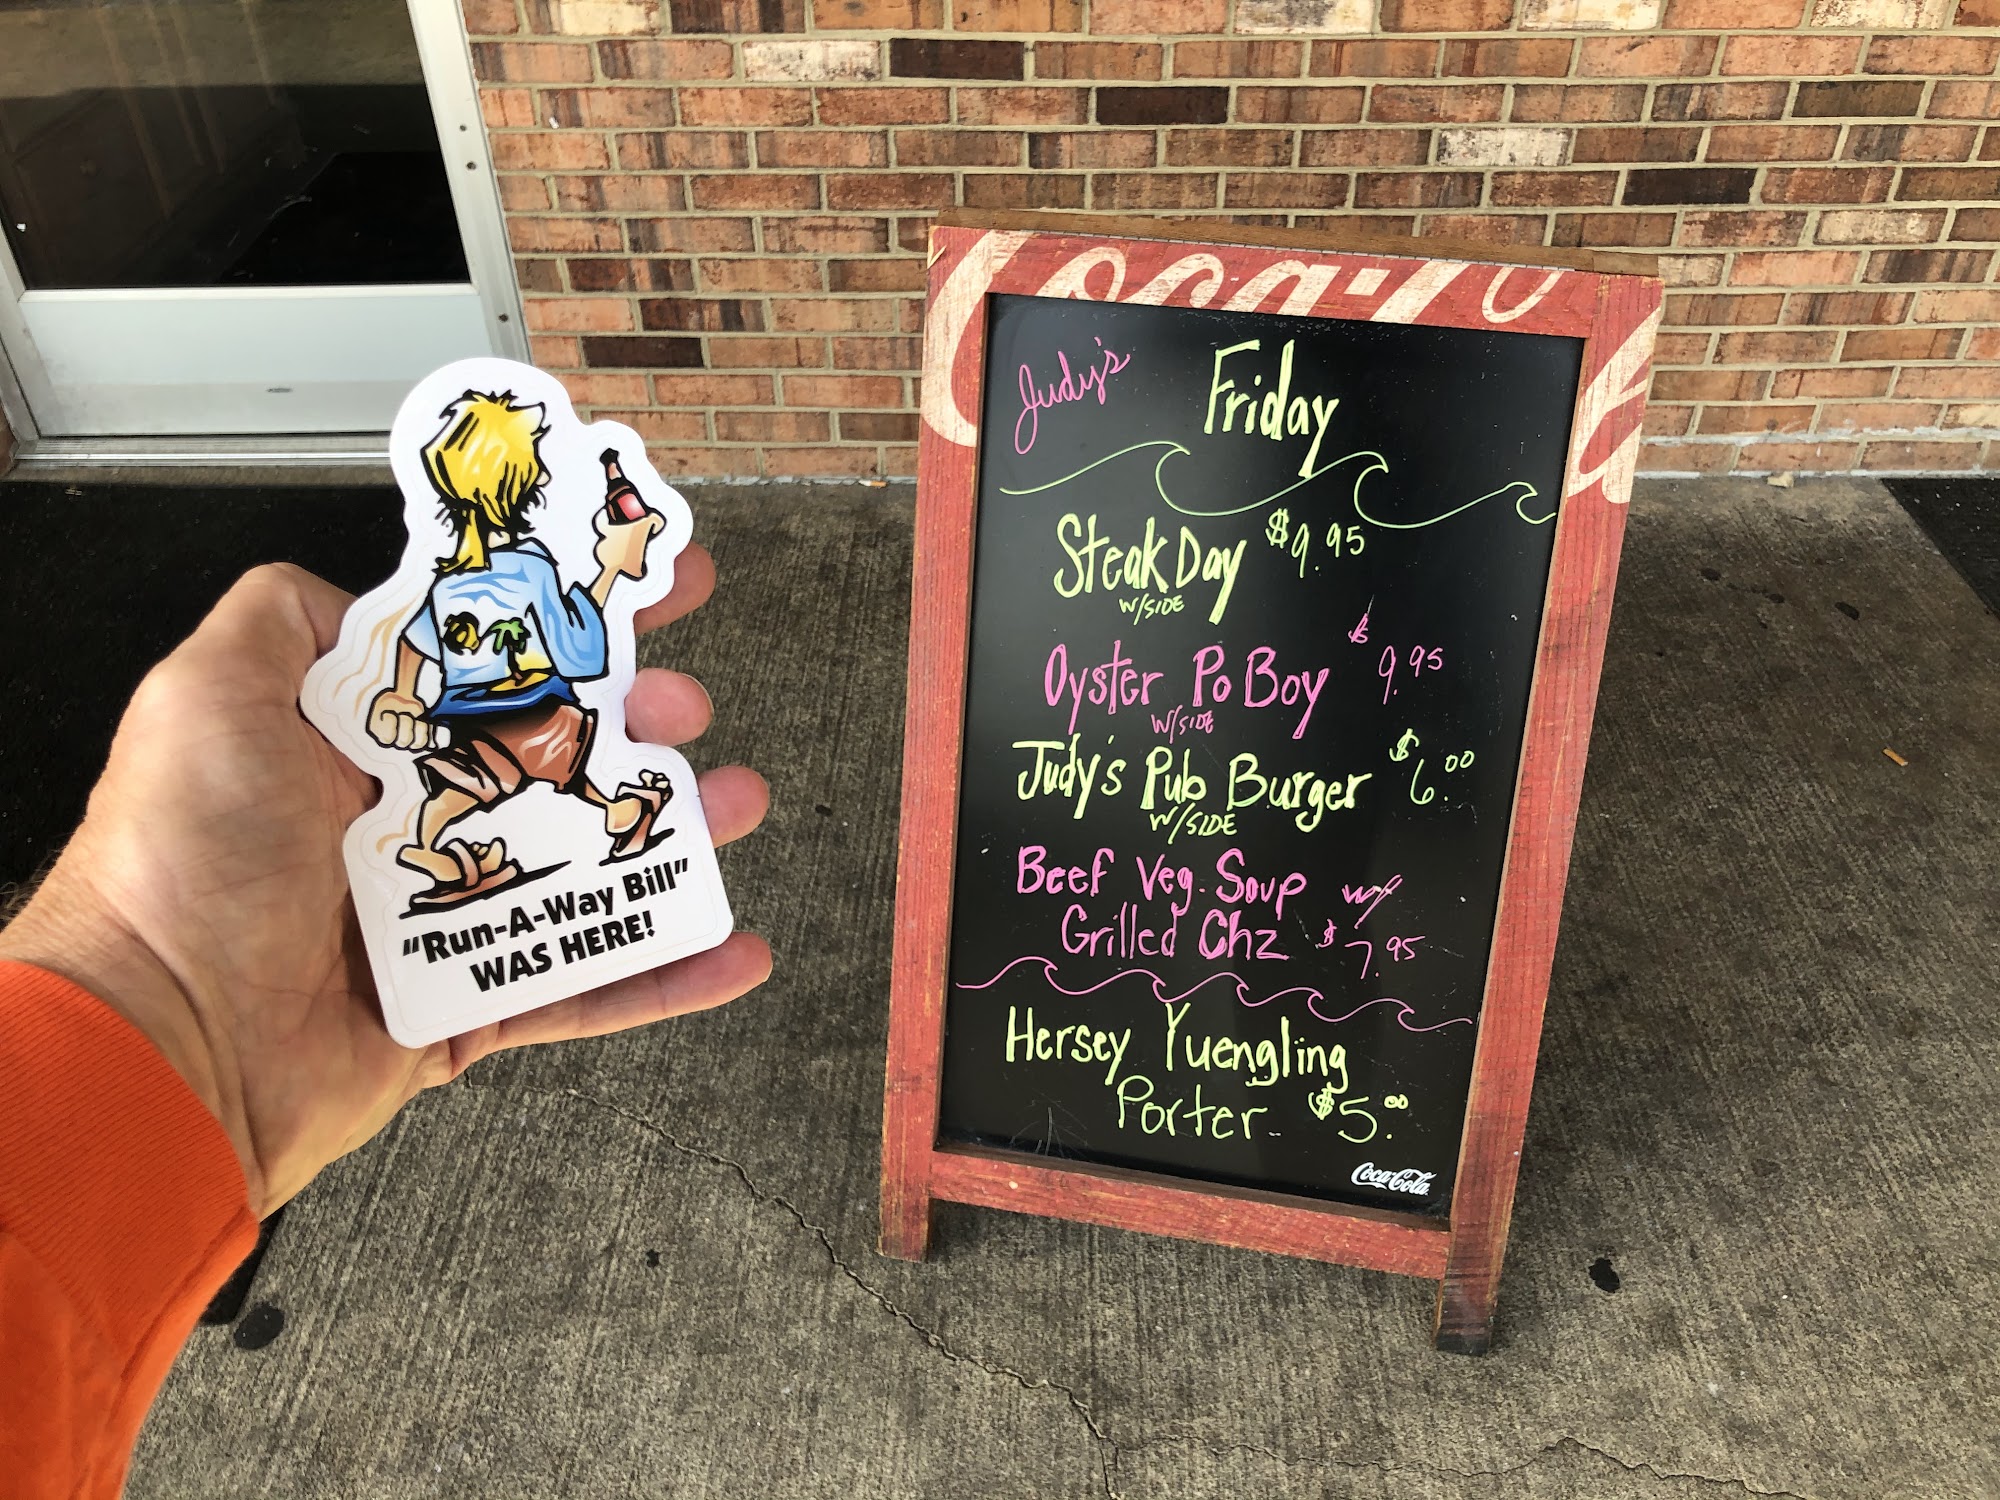 "Run-A-Way Bill"
WAS HERE!
Coca-Cola
Judy's
Friday
Steak Day $9.95
W/SIDE
Oyster Po Boy $9.95
W/SIDE
Judy's Pub Burger $6.00
W/SIDE
Beef Veg. Soup w/
Grilled Chz $7.95
Hersey Yuengling
Porter $5.00
Coca-Cola